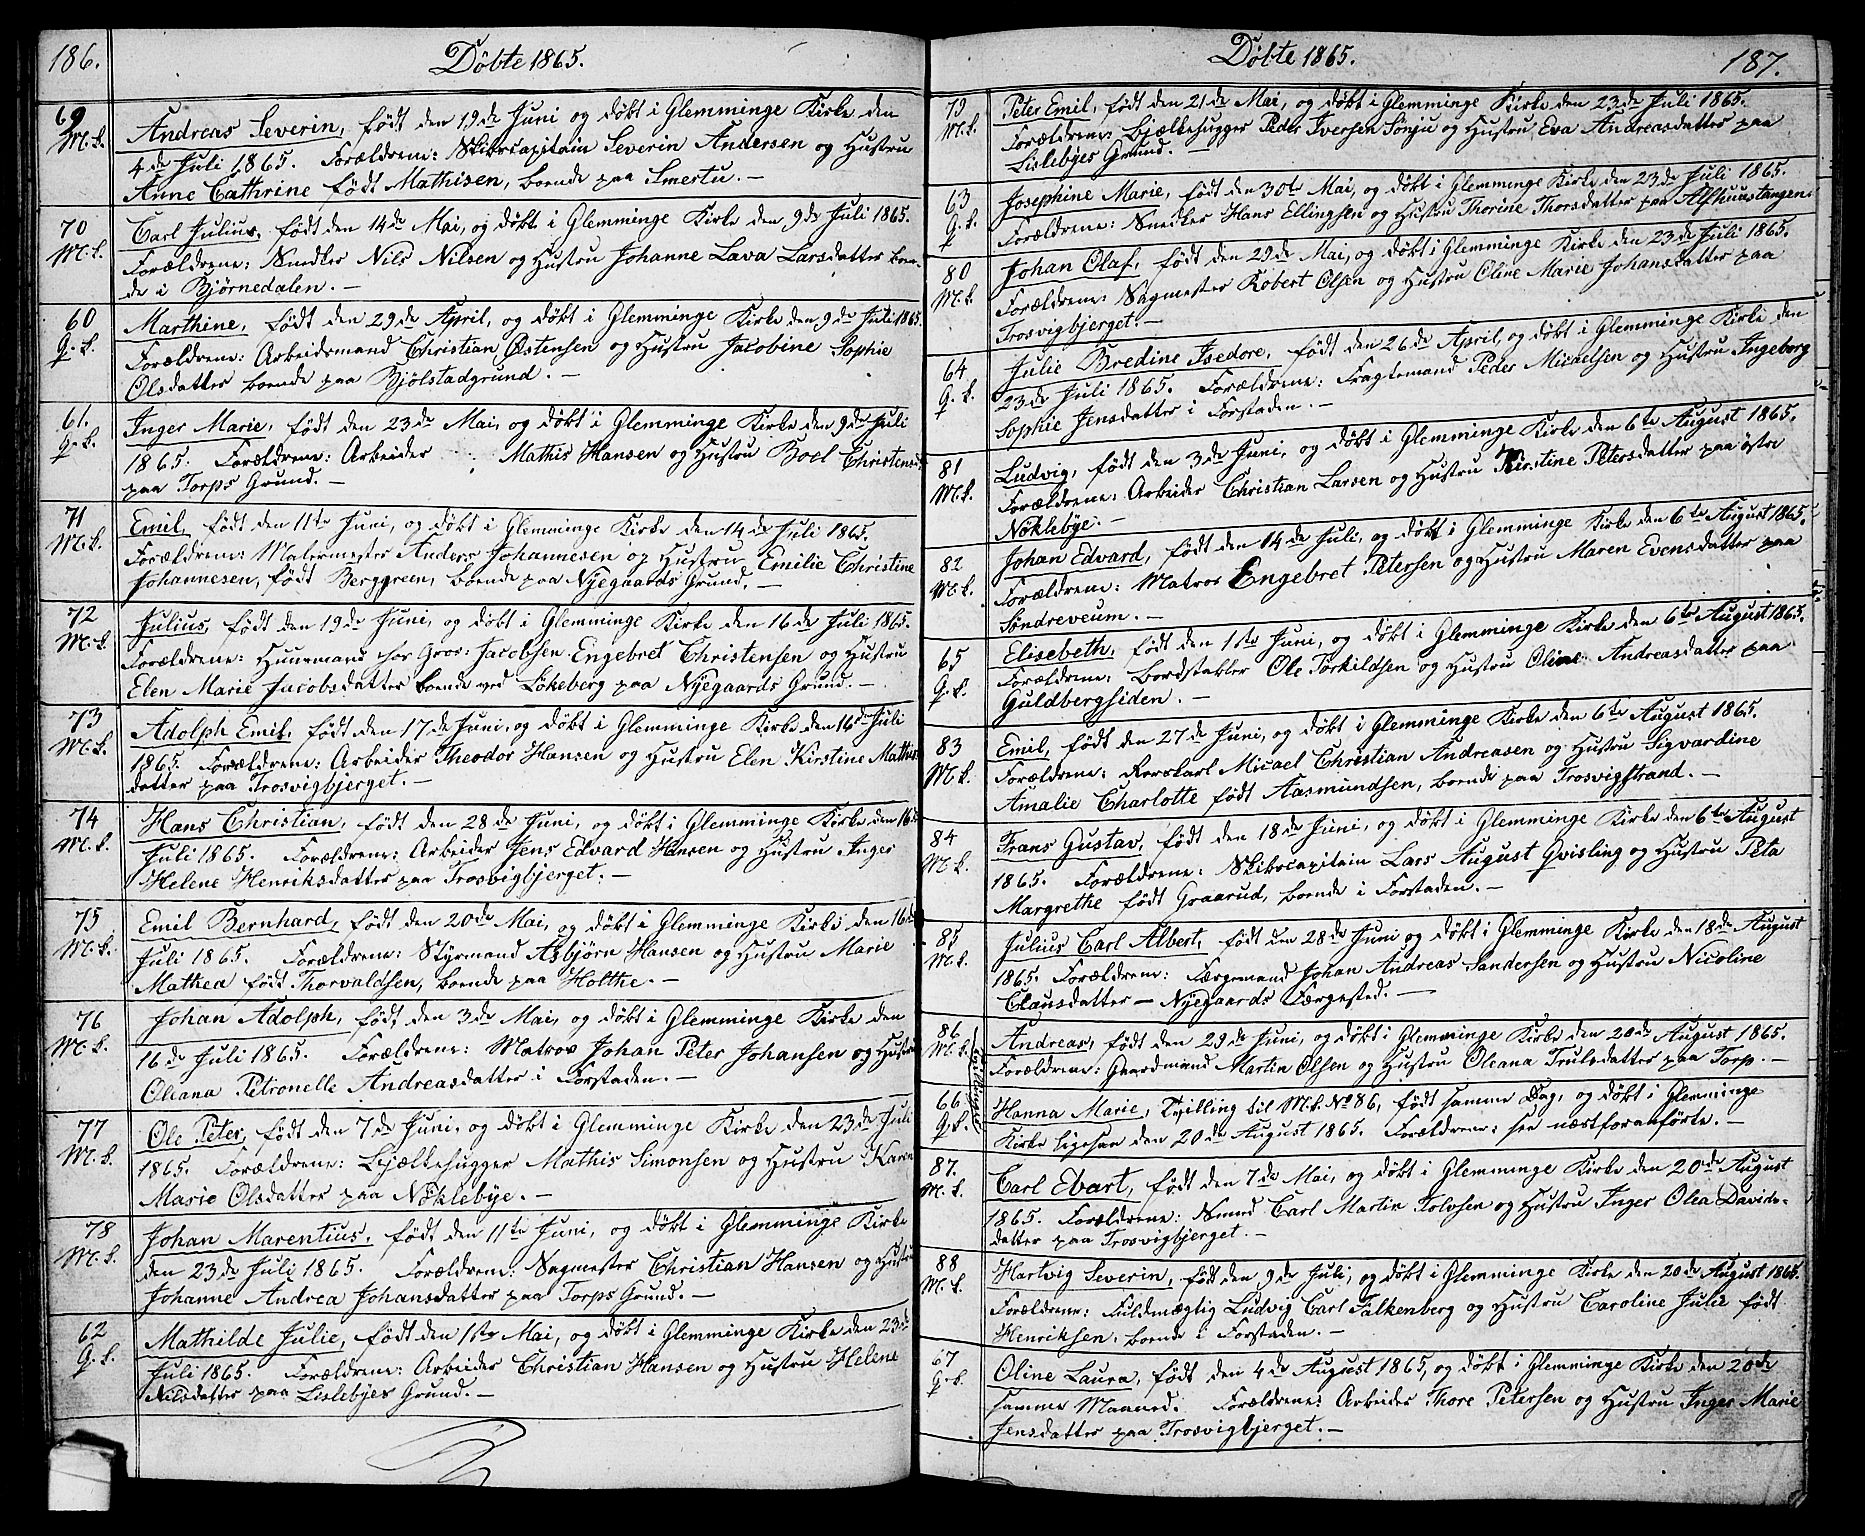 186.
Døbte 1865.
69
M.k.
Andreas Severin, født den 19de Juni og døbt i Glemminge Kirke den
4de Juli 1865. Forældrene: Skibscapitain Severin Andersen og Hustru
Anne Cathrine født Mathisen, boende paa Smertu. —
70
M.k.
Carl Julius, født den 14de Mai, og døbt i Glemminge Kirke den 9de Juli 1865.
Forældrene: Snedker Nils Nilsen og Hustru Johanne Lava Larsdatter boen-
de i Bjørnedalen. —
60
Q.k.
Marthine, født den 29de April, og døbt i Glemminge Kirke den 9de Juli 1865.
Forældrene: Arbeidsmand Christian Østensen og Hustru Jacobine Sophie
Olsdatter boende paa Bjölstadgrund. —
61.
Q.k.
Inger Marie, født den 23de Mai, og døbt i Glemminge Kirke den 9de Juli
1865. Forældrene: Arbeider Mathis Hansen og Hustru Boel Christens
paa Torps Grund. —
71
M.k.
Emil, født den 11te Juni, og døbt i Glemminge Kirke den 14de Juli 1865.
Forældrene: Malermester Anders Johannesen og Hustru Emilie Christine
Johannesen, født Berggreen, boende paa Nyegaards Grund. —
72
M.k.
Julius, født den 19de Juni, og døbt i Glemminge Kirke den 16de Juli 1865.
Forældrene: Huusmand hos Gros: Jacobsen Engebret Christensen og Hustru
Elen Marie Jacobsdatter boende ved Lökeberg paa Nyegaards Grund. —
73
M.k.
Adolph Emil, født den 17de Juni, og døbt i Glemminge Kirke den 16de Juli
1865. Forældrene: Arbeider Theodor Hansen og Hustru Elen Kirstine Mathis
datter paa Trosvigbjerget. —
74
M.k.
Hans Christian, født den 28de Juni, og døbt i Glemminge Kirke den 16de
Juli 1865. Forældrene: Arbeider Jens Edvard Hansen og Hustru Inger
Helene Henriksdatter paa Trosvigbjerget. —
75
M.k.
Emil Bernhard, født den 20de Mai, og døbt i Glemminge Kirke den 16de
Juli 1865. Forældrene: Styrmand Asbjörn Hansen og Hustru Marie
Mathea født Thorvaldsen, boende paa Holthe. —
76
M.k.
Johan Adolph, født den 3de Mai, og døbt i Glemminge Kirke den
16de Juli 1865. Forældrene: Matros Johan Peter Johansen og Hustru
Oleana Petronelle Andreasdatter i Forstaden. —
77
M.k.
Ole Peter, født den 7de Juni, og døbt i Glemminge Kirke den 23de Juli
1865. Forældrene: Bjælkehugger Mathis Simonsen og Hustru Karen
Marie Olsdatter paa Nöklebye. —
78
M.k.
Johan Marentius, født den 11te Juni, og døbt i Glemminge Kirke
den 23de Juli 1865. Forældrene: Sagmester Christian Hansen og Hustru
Johanne Andrea Johansdatter paa Torps Grund. —
62
Q.k.
Mathilde Julie, født den 1ste Mai, og døbt i Glemminge Kirke den 23de
Juli 1865. Forældrene: Arbeider Christian Hansen og Hustru Helene
Nilsdatter paa Lislebyes Grund. —
Døbte 1865.
187.
79
M.k.
Peter Emil, født den 21de Mai, og døbt i Glemminge Kirke den 23de Juli 1865.
Forældrene: Bjælkehugger Peder Iversen Sönju og Hustru Eva Andreasdatter paa
Lislebyes Grund.
63
Q.k.
Josephine Marie, født den 30te Mai, og døbt i Glemminge Kirke den 23de Juli 1865.
Forældrene: Snedker Hans Ellingsen og Hustru Thorine Thorsdatter paa Alfhuustangen.
80
M.k.
Johan Olaf, født den 29de Mai, og døbt i Glemminge Kirke den 23de Juli 1865.
Forældrene: Sagmester Robert Olsen og Hustru Oline Marie Johansdatter paa
Trosvigbjerget. —
64
Q.k.
Julie Bredine Isedore, født den 26de April, og døbt i Glemminge Kirke den
23de Juli 1865. Forældrene: Fragtemand Peder Micaelsen og Hustru Ingeborg
Sophie Jensdatter i Forstaden. —
81
M.k.
Ludvig, født den 3de Juni, og døbt i Glemminge Kirke den 6te August 1865.
Forældrene: Arbeider Christian Larsen og Hustru Kirstine Petersdatter paa østre
Nöklebye. —
82
M.k.
Johan Edvard, født den 14de Juli, og døbt i Glemminge Kirke den 6te August 1865.
Forældrene: Matros Engebret Petersen og Hustru Maren Evensdatter paa
Söndreveum. —
65
Q.k.
Elisebeth, født den 1ste Juni, og døbt i Glemminge Kirke den 6te August 1865.
Forældrene: Bordstabler Ole Torkildsen og Hustru Oline Andreasdatter paa
Guldbergsiden. —
83
M.k.
Emil, født den 27de Juni, og døbt i Glemminge Kirke den 6te August 1865.
Forældrene: Rorskarl Micael Christian Andreasen og Hustru Sigvardine
Amalie Charlotte født Aasmundsen, boende paa Trosvigstrand. —
84
M.k.
Frans Gustav, født den 18de Juni, og døbt i Glemminge Kirke den 6te August
1865. Forældrene: Skibscapitain Lars August Qvisling og Hustru Peta
Margrethe født Graarud, boende i Forstaden. —
85
M.k.
Julius Carl Albert, født den 28de Juni og døbt i Glemminge Kirke den 18de August
1865. Forældrene: Færgemand Johan Andreas Sandersen og Hustru Nicoline
Clausdatter — Nyegaards Færgested. —
86
M.k.
Andreas, født den 29de Juni, og døbt i Glemminge Kirke den 20de August 1865.
Forældrene: Gaardmand Martin Olsen og Hustru Oleana Trulsdatter paa Torp. —
66
Q.k.
Hanna Marie, Tvilling til M.k. No 86, født samme Dag, og døbt i Glemminge
Kirke ligesaa den 20de August 1865. Forældrene: see næstforanførte. —
87.
M.k.
Carl Evart, født den 7de Mai, og døbt i Glemminge Kirke den 20de August
1865. Forældrene: Smed Carl Martin Tolvsen og Hustru Inger Olea Davids-
datter paa Trosvigbjerget. —
88
M.k.
Hartvig Severin, født den 9de Juli, og døbt i Glemminge Kirke den 20de August 1865.
Forældrene: Fuldmægtig Ludvig Carl Falkenberg og Hustru Caroline Julie født
Henriksen, boende i Forstaden. —
67
Q.k.
Oline Laura, født den 4de August 1865, og døbt i Glemminge Kirke den 20de
samme Maaned. Forældrene: Arbeider Thore Petersen og Hustru Inger Marie
Jensdatter paa Trosvigbjerget. —